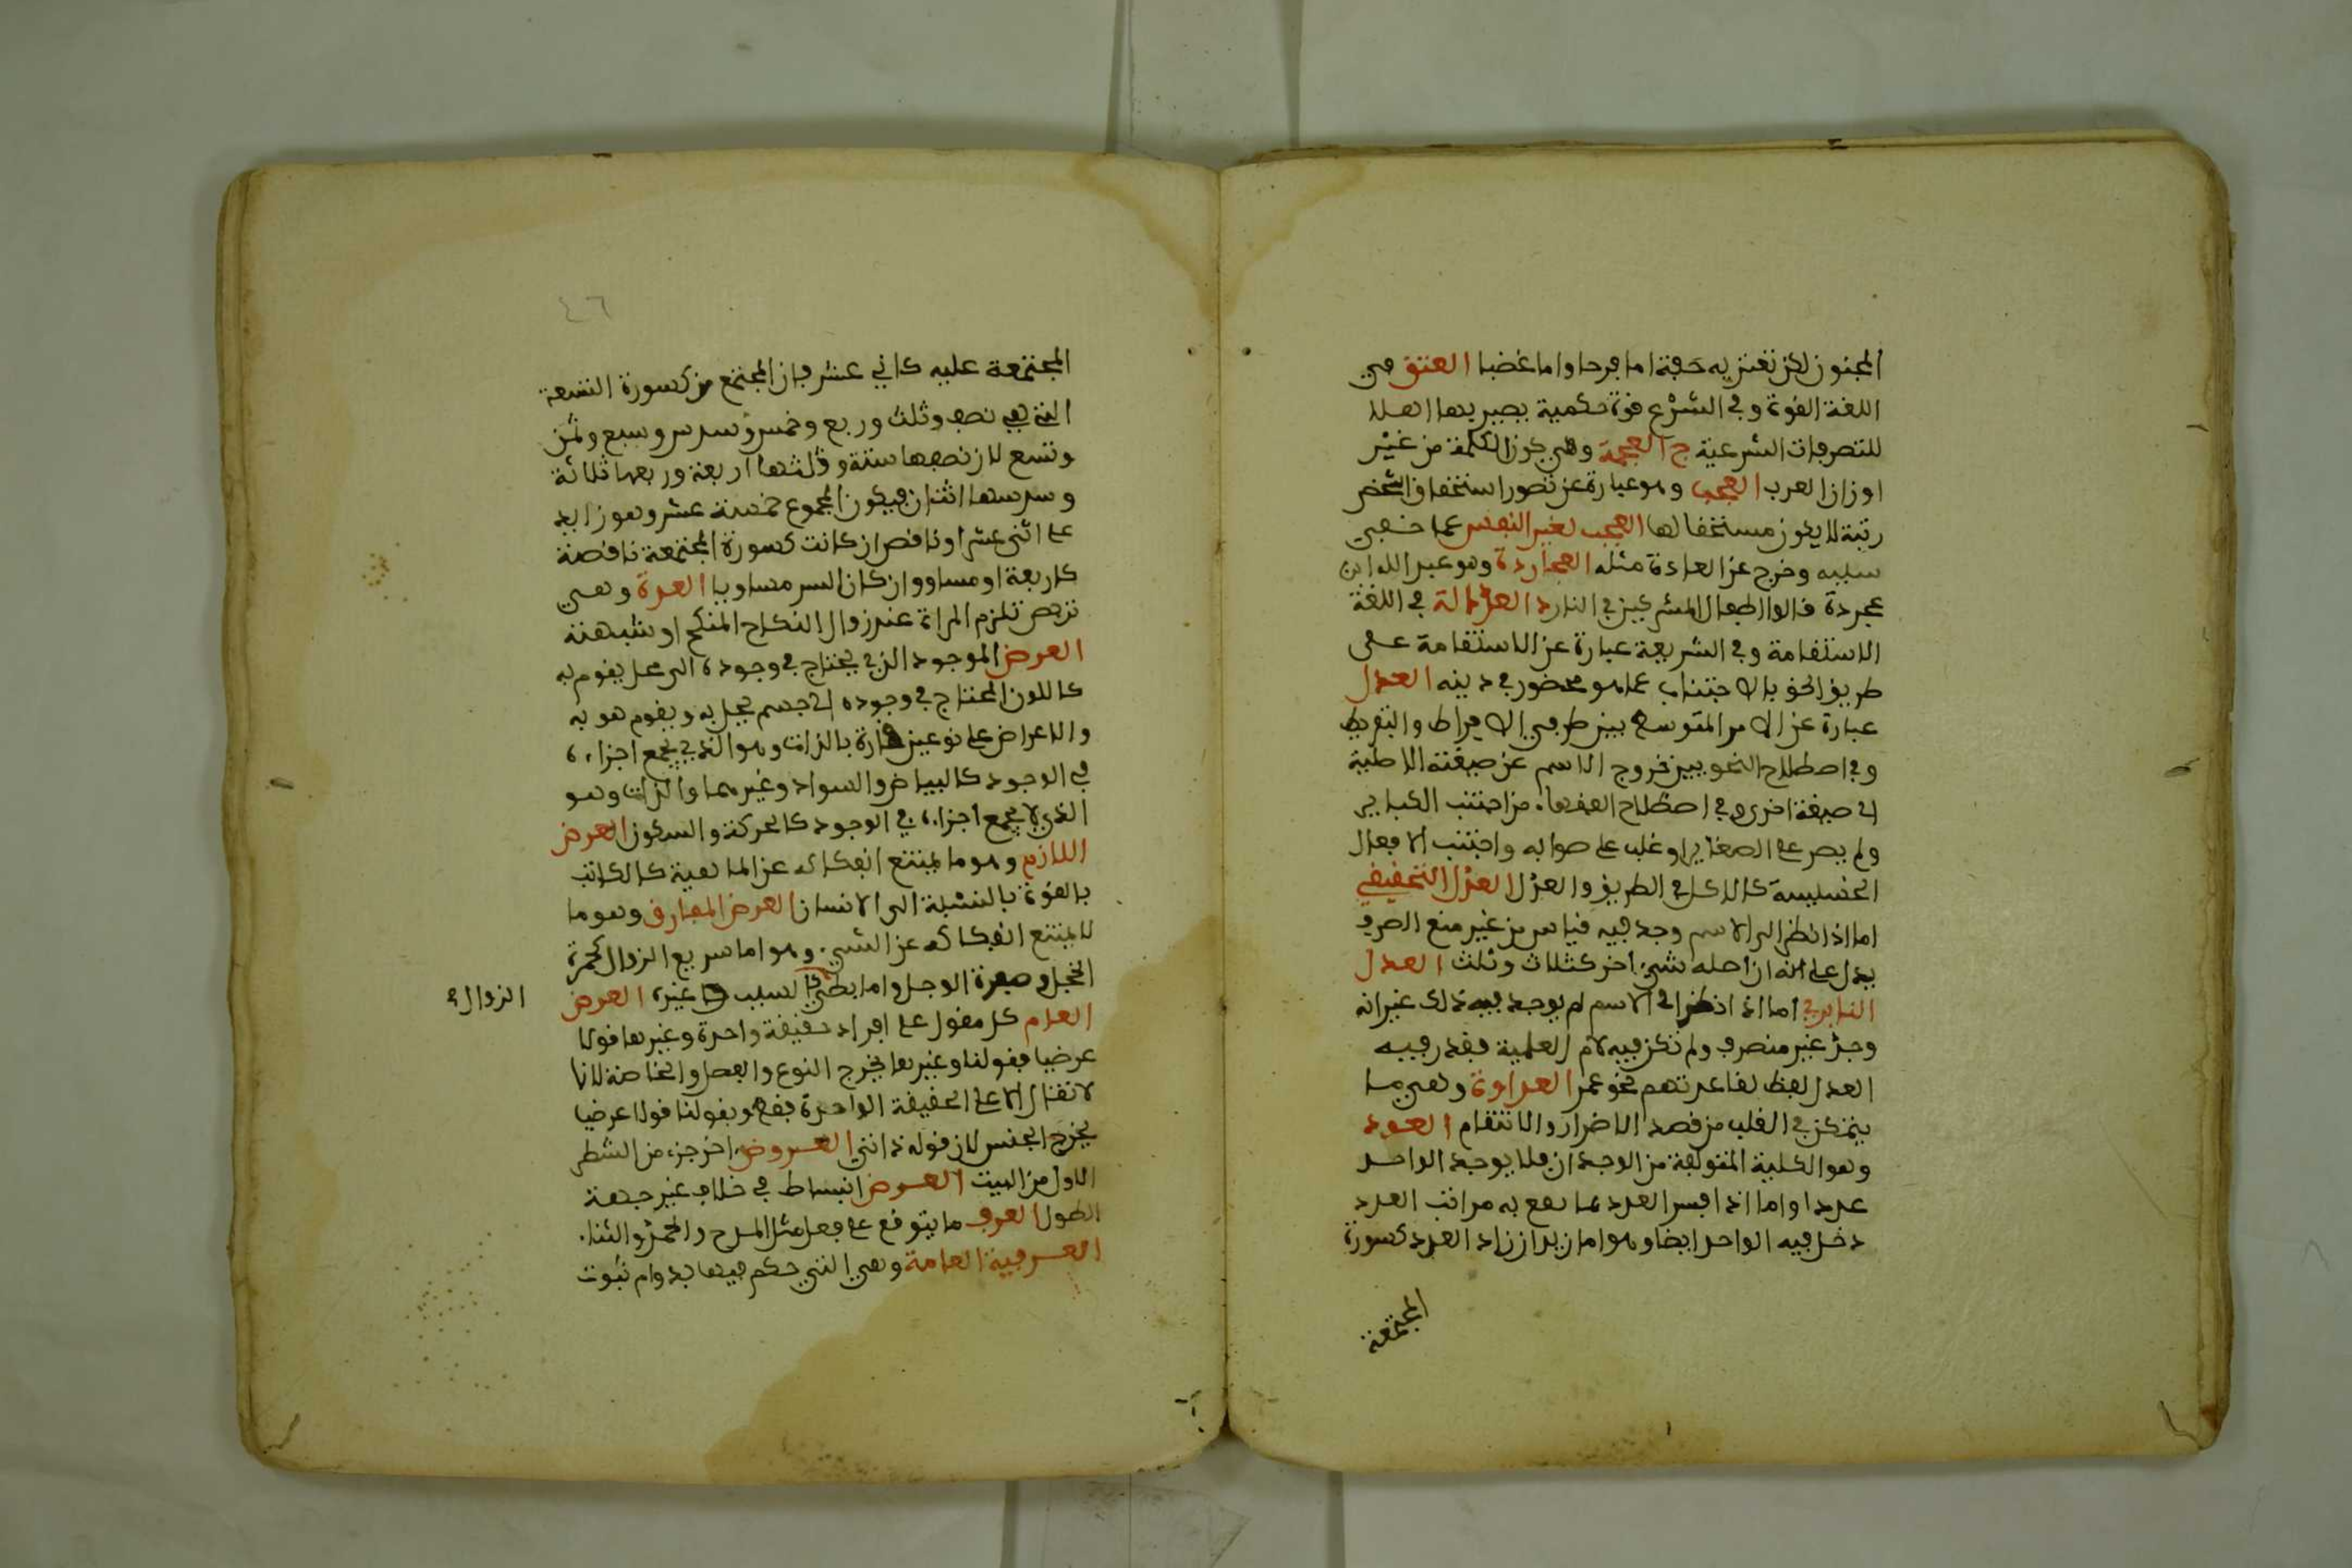 المجنون لكن تعتريه خفة اما فرحا واما غضبا العتق في
اللغة القوة وفي الشرع قوة حكمية يصير بها اهلا
للتصرفات الشرعية ج العجمة وهي كون الكلمة من غير
اوزان العرب العجب وهو عبارة عن تصور استحقاق الشخص
رتبة لا يكون مستحقا لها العجب تغير النفس عما خفي
سببه وخرج عن العادة مثله العجاردة وهو عبد الله ابن
عجردة قالوا اطفال المشركين في النار د العدالة في اللغة
الاستقامة وفي الشريعة عبارة عن الاستقامة على
طريق الحق بالاجتناب عما هو محضور في دينه العدل
عبارة عن الامر المتوسط بين طرفي الافراط والتفريط
وفي اصطلاح النحويين خروج الاسم عن صيغته الاصلية
الى صيغة اخرى وفي اصطلاح الفقهاء من اجتنب الكباير
ولم يصر على الصغاير او غلب على صوابه واجتنب الافعال
الخسيسة كالاكل في الطريق والعدل العدل التحقيقي
اما اذا نظر الى الاسم وجد فيه قياس من غير منع الصرف
يدل على انه ان اصله شيء اخر كثلاث وثلث العدل
اما اذا نظر الى الاسم لم يوجد فيه ذلك غير انه
وجد غير منصرف ولم تكن فيه لام العلمية فقدر فيه
العدل لفظا لقاعدتهم نحو عمر العداوة وهي ما
يتمكن في القلب من قصد الاضرار والانتقام العدد
وهو الكلية المتولفة من الوجدان فلا يوجد الواحد
عددا واما اذا فسر العدد بما يقع به مراتب العدد
دخل فيه الواحد ايضا وهو اما زيد ان زاد العدد كسورة
المجتمعة
٤٦
المجتمعة عليه كاثني عشر فان المجتمع من كسورة التسعة
التي هي نصف وثلث وربع وخمس وسدس وسبع وثمن
وتسع لان نصفها ستة وثلثها اربعة وربعها ثلاثة
وسدسها اثنان فيكون المجموع خمسة عشر وهو زايد
على اثني عشر او ناقص ان كانت كسورة المجتمعة ناقصة
كاربعة او مساو وان كان السر مساويا العدة وهي
تربص تلزم المراة عند زوال النكاح المتكح او شبهته
العرض الموجود الذي يحتاج في وجوده الى محل يقوم به
كاللون المحتاج في وجوده الى جسم يحل به ويقوم هو به
والاعراض على نوعين قارة بالذات وهو الذي يجمع اجزاءه
في الوجود كالبياض والسواد وغيرهما والذات وهو
الذي لا يجمع اجزاءه في الوجود كالحركة والسكون العرض
اللازم وهو ما يمتنع انفكاكه عن الماهية كالكاتب
بالقوة بالنسبة الى الانسان العرض المفارق وهو ما
لا يمتنع انفكاكه عن الشيء وهو اما سريع الزوال كحمرة
الخجل وصفرة الوجل واما بطيء كالسبب غيره العرض
الزوال
العام كل مقول على افراد حقيقة واحدة وغيرها قولا
عرضيا فقولنا وغيرها يخرج النوع والفصل والخاصة لانها
لا تقال الا على الحقيقة الواحدة فقط وبقولنا قولا عرضيا
يخرج الجنس لان قوله ذاتي العروض اخر جزء من الشطر
الاول من البيت العرض انبساط في خلاف غير جهة
الطول العرف ما يتوقع على فعل مثل المدح والحمد والثناء
العرفية العامة وهي التي حكم فيها بدوام ثبوت